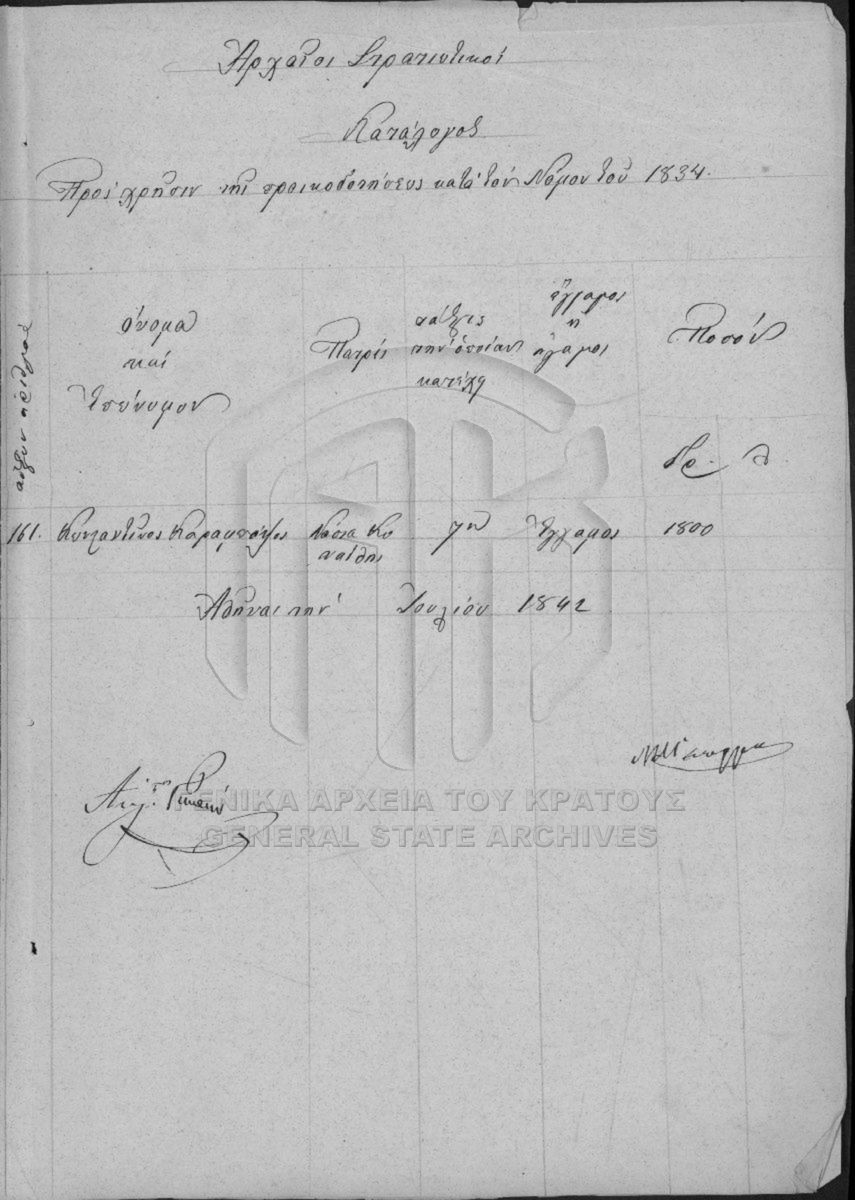 Ἀρχαῖοι Στρατιωτικοί
Κατάλογος
Πρὸς χρῆσιν τῆς προικοδοτήσεως κατὰ τὸν Νόμον τοῦ 1834.
αὔξων ἀριθμός
ὄνομα
καὶ
Ἐπώνυμον
Πατρίς
τάξις
τὴν ὁποίαν
κατέχῃ
ἔγγαμοι
ἢ
ἄγαμοι
Ποσόν
δρ. λ
161. Κωνσταντῖνος 7η Ἔγγαμος 1800
Ἀθῆναι τὴν Ἰουλίου 1842
ΓΕΝΙΚΑ ΑΡΧΕΙΑ ΤΟΥ ΚΡΑΤΟΥΣ
GENERAL STATE ARCHIVES